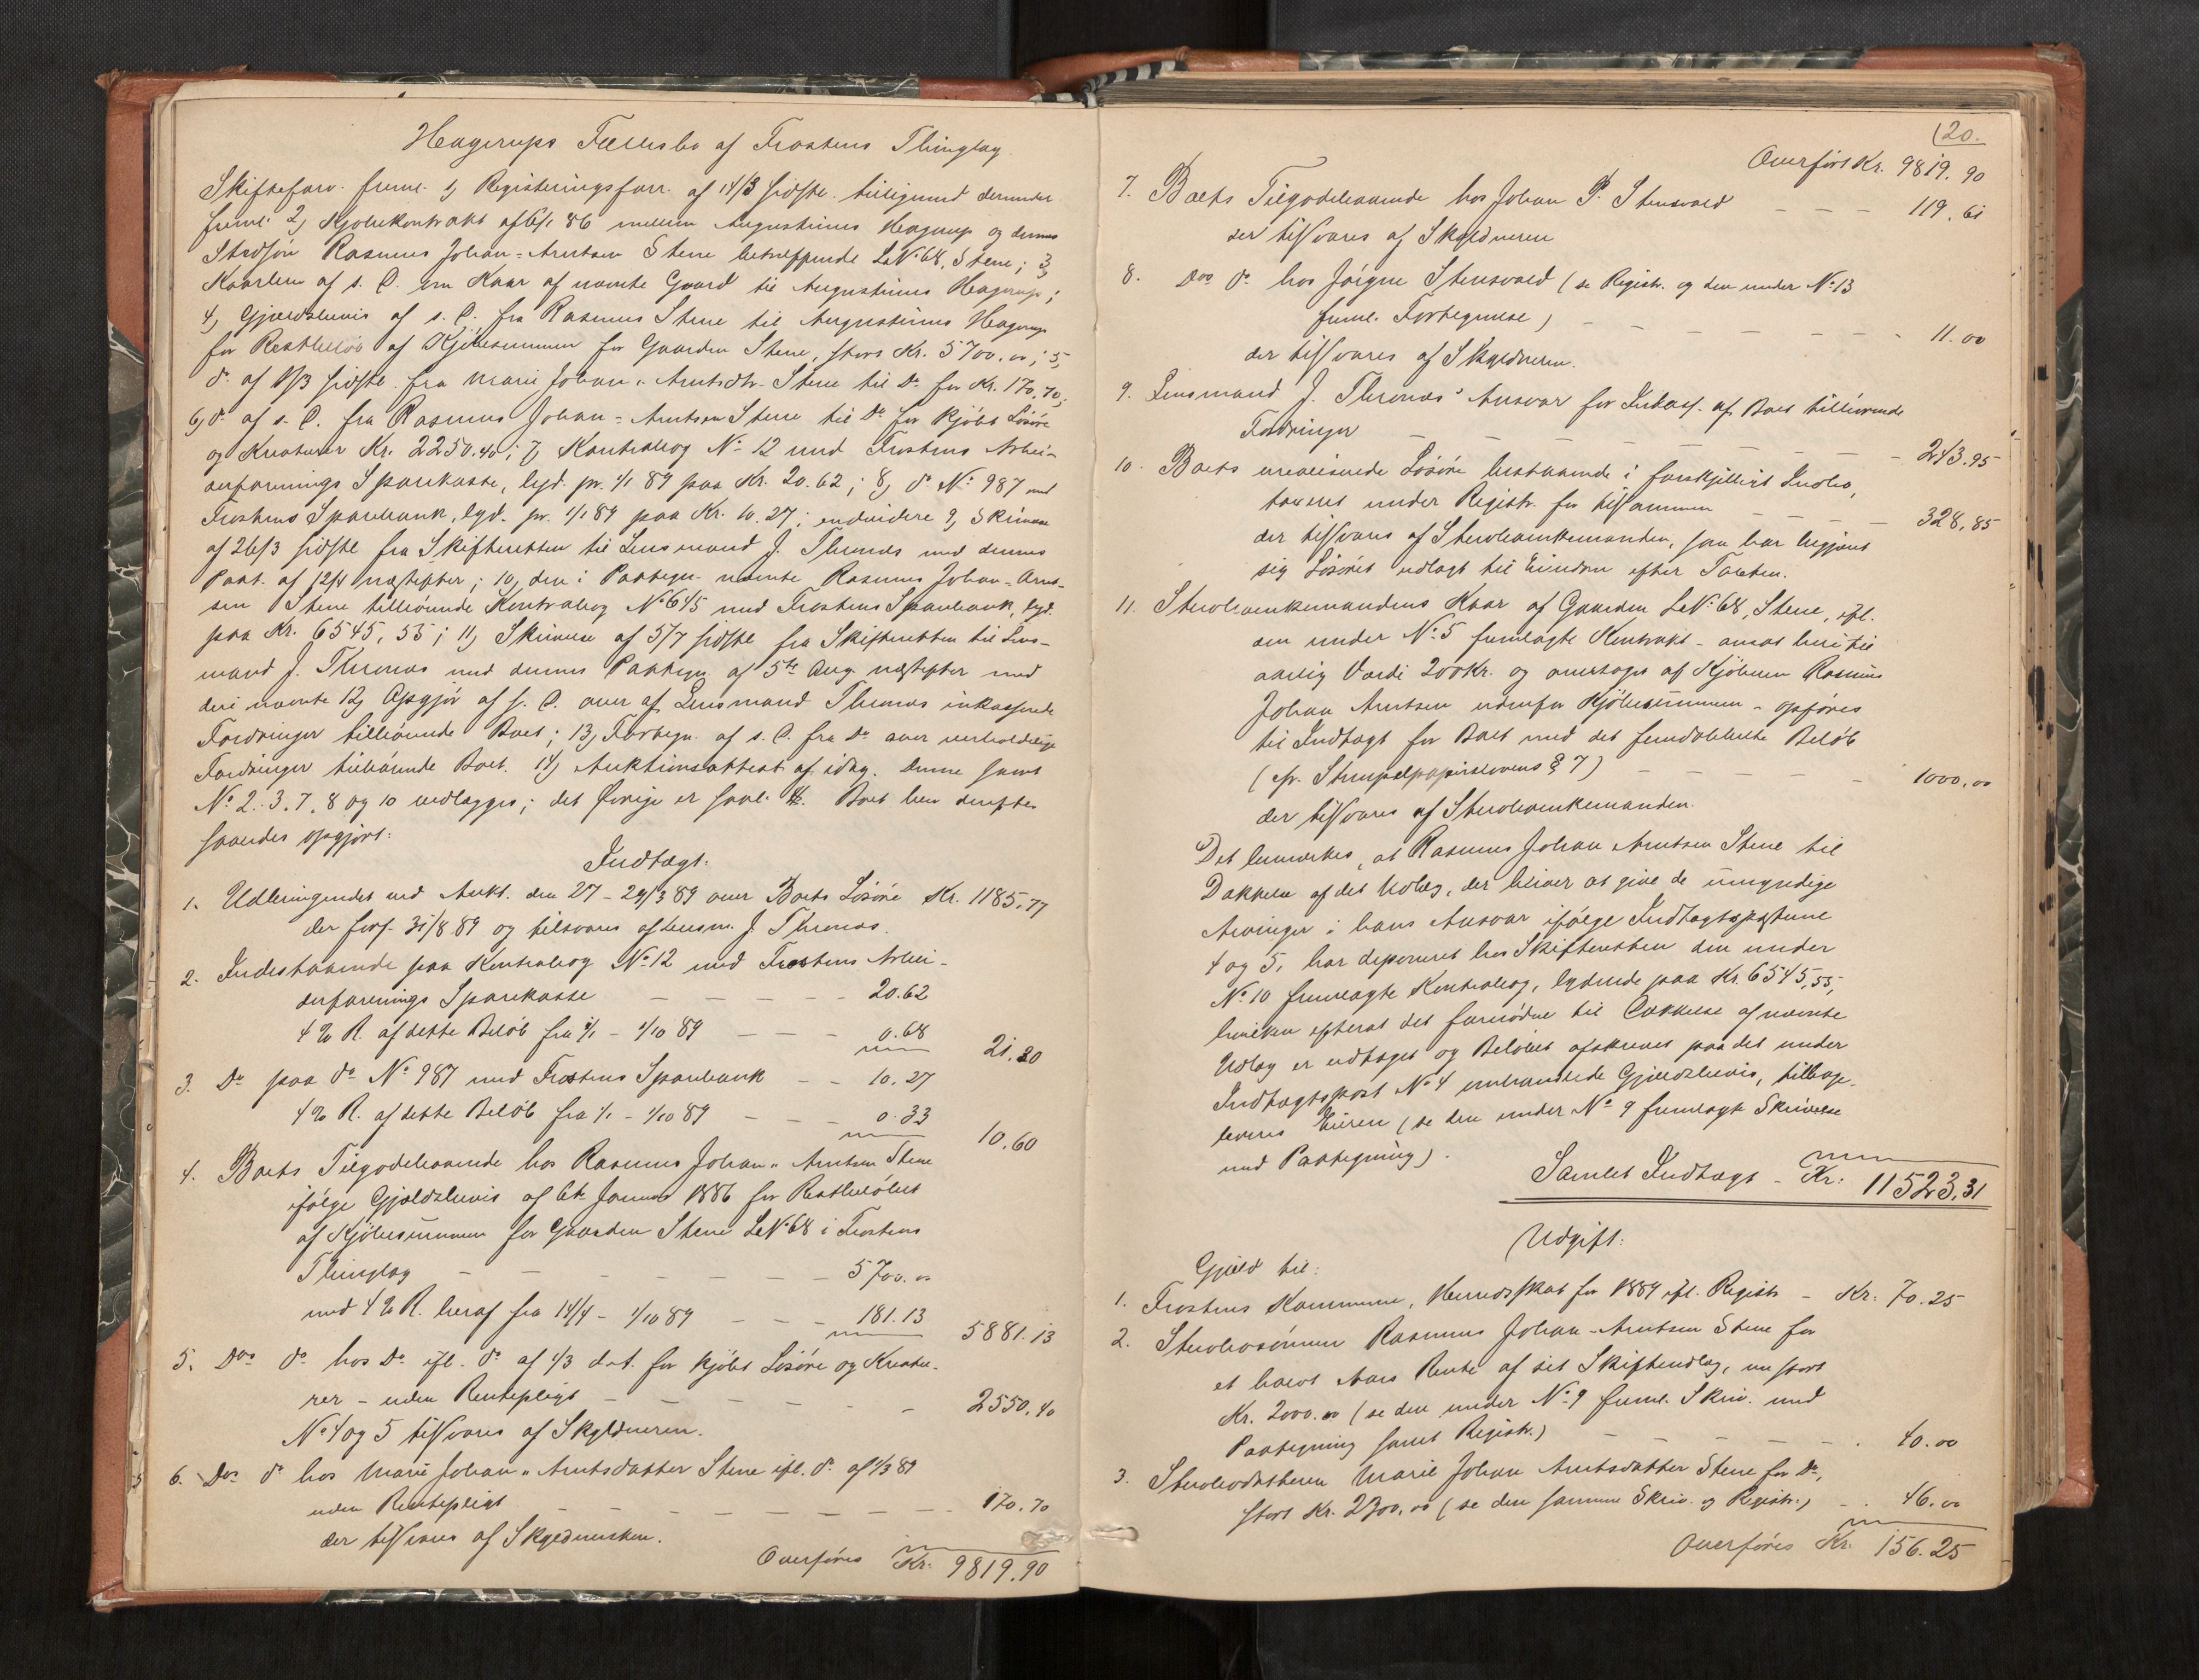 Hagerups Fællesbo af Frostens Thinglag.
Skifteforv. freml. 1) Registeringsforr. af 14/3 sidstl. tilligemed derunder
freml. 2) Kjøbekontrakt af 6/1 86 mellem Augustinus Hagerup og dennes
Stedsøn Rasmus Johan-Arntsen Stene betræffende LNº 68, Stene; 3)
Kaarbrev af s. D. om Kaar af nævnte Gaard til Augustinus Hagerup;
4) Gjældsbevis af s. D. fra Rasmus Stene til Augustinus Hagerup
for Restbeløb af Kjøbesummen for Gaarden Stene, stort Kr. 5700.00; 5)
dº af 1/3 sidstl. fra Marie Johan-Arntsdtr. Stene til Dº for Kr. 170,70;
6) dº af s. D. fra Rasmus Johan-Arntsen Stene til Dº for kjøbt Løsøre
og Kreaturer Kr. 2250.40; 7) Kontrabog Nº 12 med Frostens Arbei-
derforenings Sparekasse, lyd. pr. 1/1 89 paa Kr. 20.62; 8) dº Nº 987 med
Frostens Sparebank, lyd. pr. 1/1 89 paa Kr. 10.27; endvidere 9) Skrivelse
af 26/3 sidstl. fra Skifteretten til Lensmand J. Thrones med dennes
Paat. af 12/4 næstefter; 10) den i Paategn. nævnte Rasmus Johan-Arnt-
sen Stene tilhørende Kontrabog Nº 645 med Frostens Sparebank, lyd.
paa Kr. 6545,55; 11) Skrivelse af 5/7 sidstl. fra Skifteretten til Lens-
mand J. Thrones med dennes Paategn. af 5te Aug. næstefter med
deri nævnte 12) Opgjør af s. D. over af Lensmand Thrones inkasserede
Fordringer tilhørende Boet; 13) Fortegn. af s. D. fra Dº over uerholdelige
Fordringer tilhørende Boet. 14) Auktionsattest af idag. Denne samt
Nº 2. 3. 7. 8 og 10 vedlægges; det Øvrige er saal. Boet blev derefter
saaledes opgjort:
Indtægt:
1. Udbringendet ved Aukt. den 27 - 29/3 89 over Boets Løsøre Kr. 1185,77
der forf. 31/8 89 og tilsvares af Lensm. J. Thrones.
2. Indestaaende paa Kontrabog Nº 12 med Frostens Arbei-
derforenings Sparekasse – – – – – 20.62
4 % R. af dette Beløb fra 1/1 - 1/10 89 – – – 0.68
21.30
3. Dº paa dº Nº 987 med Frostens Sparebank – – 10.27
4 % R. af dette Beløb fra 1/1 - 1/10 89 – – – 0.33
10.60
4. Boets Tilgodehavende hos Rasmus Johan-Arntsen Stene
ifølge Gjældsbevis af 6te Januar 1886 for Restbeløbet
af Kjøbesummen for Gaarden Stene LNº 68 i Frostens
Thinglag – – – – – – – 5700.00
med 4 % R. heraf fra 14/4 - 1/10 89 – – – 181.13
5881.13
5. Dº dº hos Dº ifl. dº af 1/3 d. A. for kjøbt Løsøre og Kreatu-
rer - uden Rentepligt – – – – – – 2550.40
Nº 4 og 5 tilsvares af Skyldneren.
6. Dº dº hos Marie Johan-Arntsdatter Stene ifl. dº af 1/3 89
uden Rentepligt – – – – – – – 170.70
der tilsvares af Skyldnersken.
Overføres Kr. 9819.90
(20.
Overført Kr. 9819.90
7. Boets Tilgodehavende hos Johan P. Stensvold – – – 119.61
der tilsvares af Skyldneren
8. Dº dº hos Jørgine Stensvold (se Registr. og den under Nº 13
freml. Fortegnelse) – – – – – – – 11.00
der tilsvares af Skyldneren.
9. Lensmand J. Thrones' Ansvar for Inkass. af Boet tilhørende
Fordringer – – – – – – – 243.95
10. Boets urealiserede Løsøre bestaaende i forskjelligt Indbo,
taxeret under Registr. for tilsammen – – – 328,85
der tilsvares af Sterboenkemanden, som har begjært
sig Løsøret udlagt til Eiendom efter Taxten.
11. Sterboenkemandens Kaar af Gaarden LNº 68, Stene, ifl.
den under Nº 5 fremlagte Kontrakt - ansat heri til
aarlig Værdi 200 Kr. og overtages af Kjøberen Rasmus
Johan Arntsen udenfor Kjøbesummen - opføres
til Indtægt for Boet med det femdobbelte Beløb
(cfr. Stempelpapirslovens § 7) – – – – – 1000,00
der tilsvares af Sterboenkemanden.
Det bemærkes, at Rasmus Johan Arntsen Stene til
Dækkelse af det Udlæg, der bliver at give de umyndige
Arvinger i hans Ansvar ifølge Indtægtsposterne
4 og 5, har deponeret hos Skifteretten den under
Nº 10 fremlagte Kontrabog, lydende paa Kr. 6545,55,
hvilken efterat det fornødne til Dækkelse af nævnte
Udlæg er udtaget og Beløbet afskrevet paa det under
Indtægtspost Nº 4 omhandlede Gjældsbevis, tilbage-
leveres Eieren (se den under Nº 9 fremlagte Skrivelse
med Paategning).
Samlet Indtægt - Kr. 11523,31
Udgift:
Gjæld til:
1. Frostens Kommune, Herredsskat for 1889 ifl. Registr. – Kr. 70.25
2. Sterbosønnen Rasmus Johan-Arntsen Stene for
et halvt Aars Rente af sit Skifteudlæg, nu stort
Kr. 2000.00 (se den under Nº 9 freml. Skriv. med
Paategning samt Registr.) – – – – – 40.00
3. Sterbodatteren Marie Johan Arntsdatter Stene for Dº,
stort Kr. 2300,00 (se den samme Skriv. og Registr.) – 46.00
Overføres Kr. 156.25